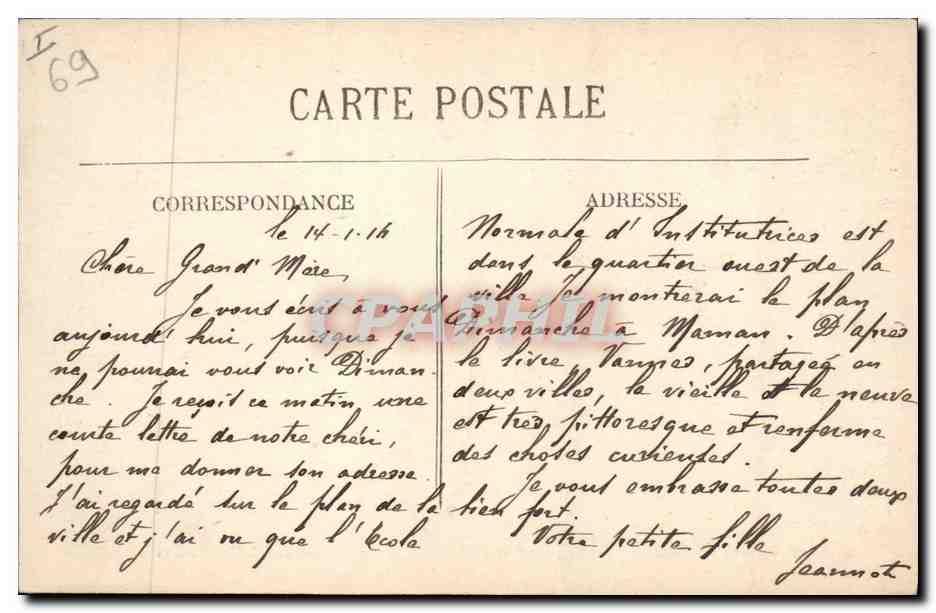 I
69
CARTE POSTALE
CORRESPONDANCE
le 14-1-16
Chère Grand' Mère,
Je vous écris à vous
aujourd'hui, puisque je
ne pourrai vous voir Diman-
che. Je reçois ce matin, une
courte lettre de notre chéri,
pour me donner son adresse.
J'ai regardé sur le plan de la
ville et j'ai vu que l'Ecole
ADRESSE
Normale d'Institutrices est
dans le quartier ouest de la
ville. Je montrerai le plan
Dimanche à Maman. D'après
le livre, Vannes, partagée en
deux villes, la vieille et la neuve
est très pittoresque et renferme
des choses curieuses.
Je vous embrasse toutes deux
bien fort.
Votre petite fille
Jeannot
CPARHIL